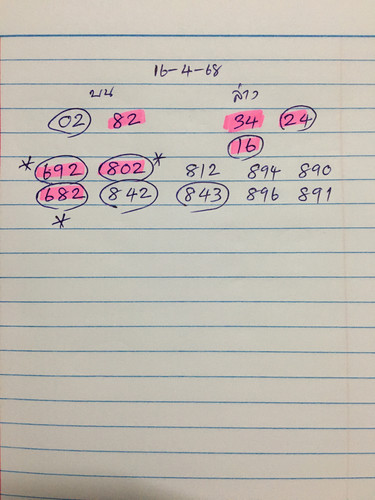 16-4-68
บน ล่าง
02 82 34 24
16
*692 802* 812 894 890
682 842 843 896 891
*